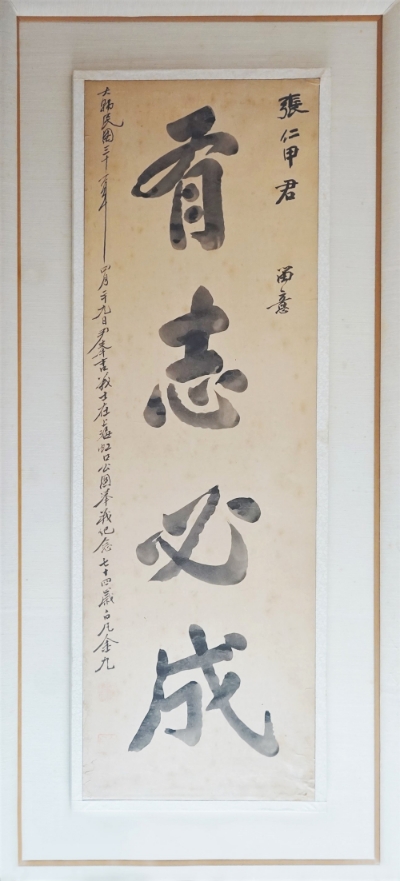 張仁甲君 留意
有志必成
大韓民國三十一年四月二十九日尹奉吉義士在上海虹口公園擧義紀念七十四歲白凡金九